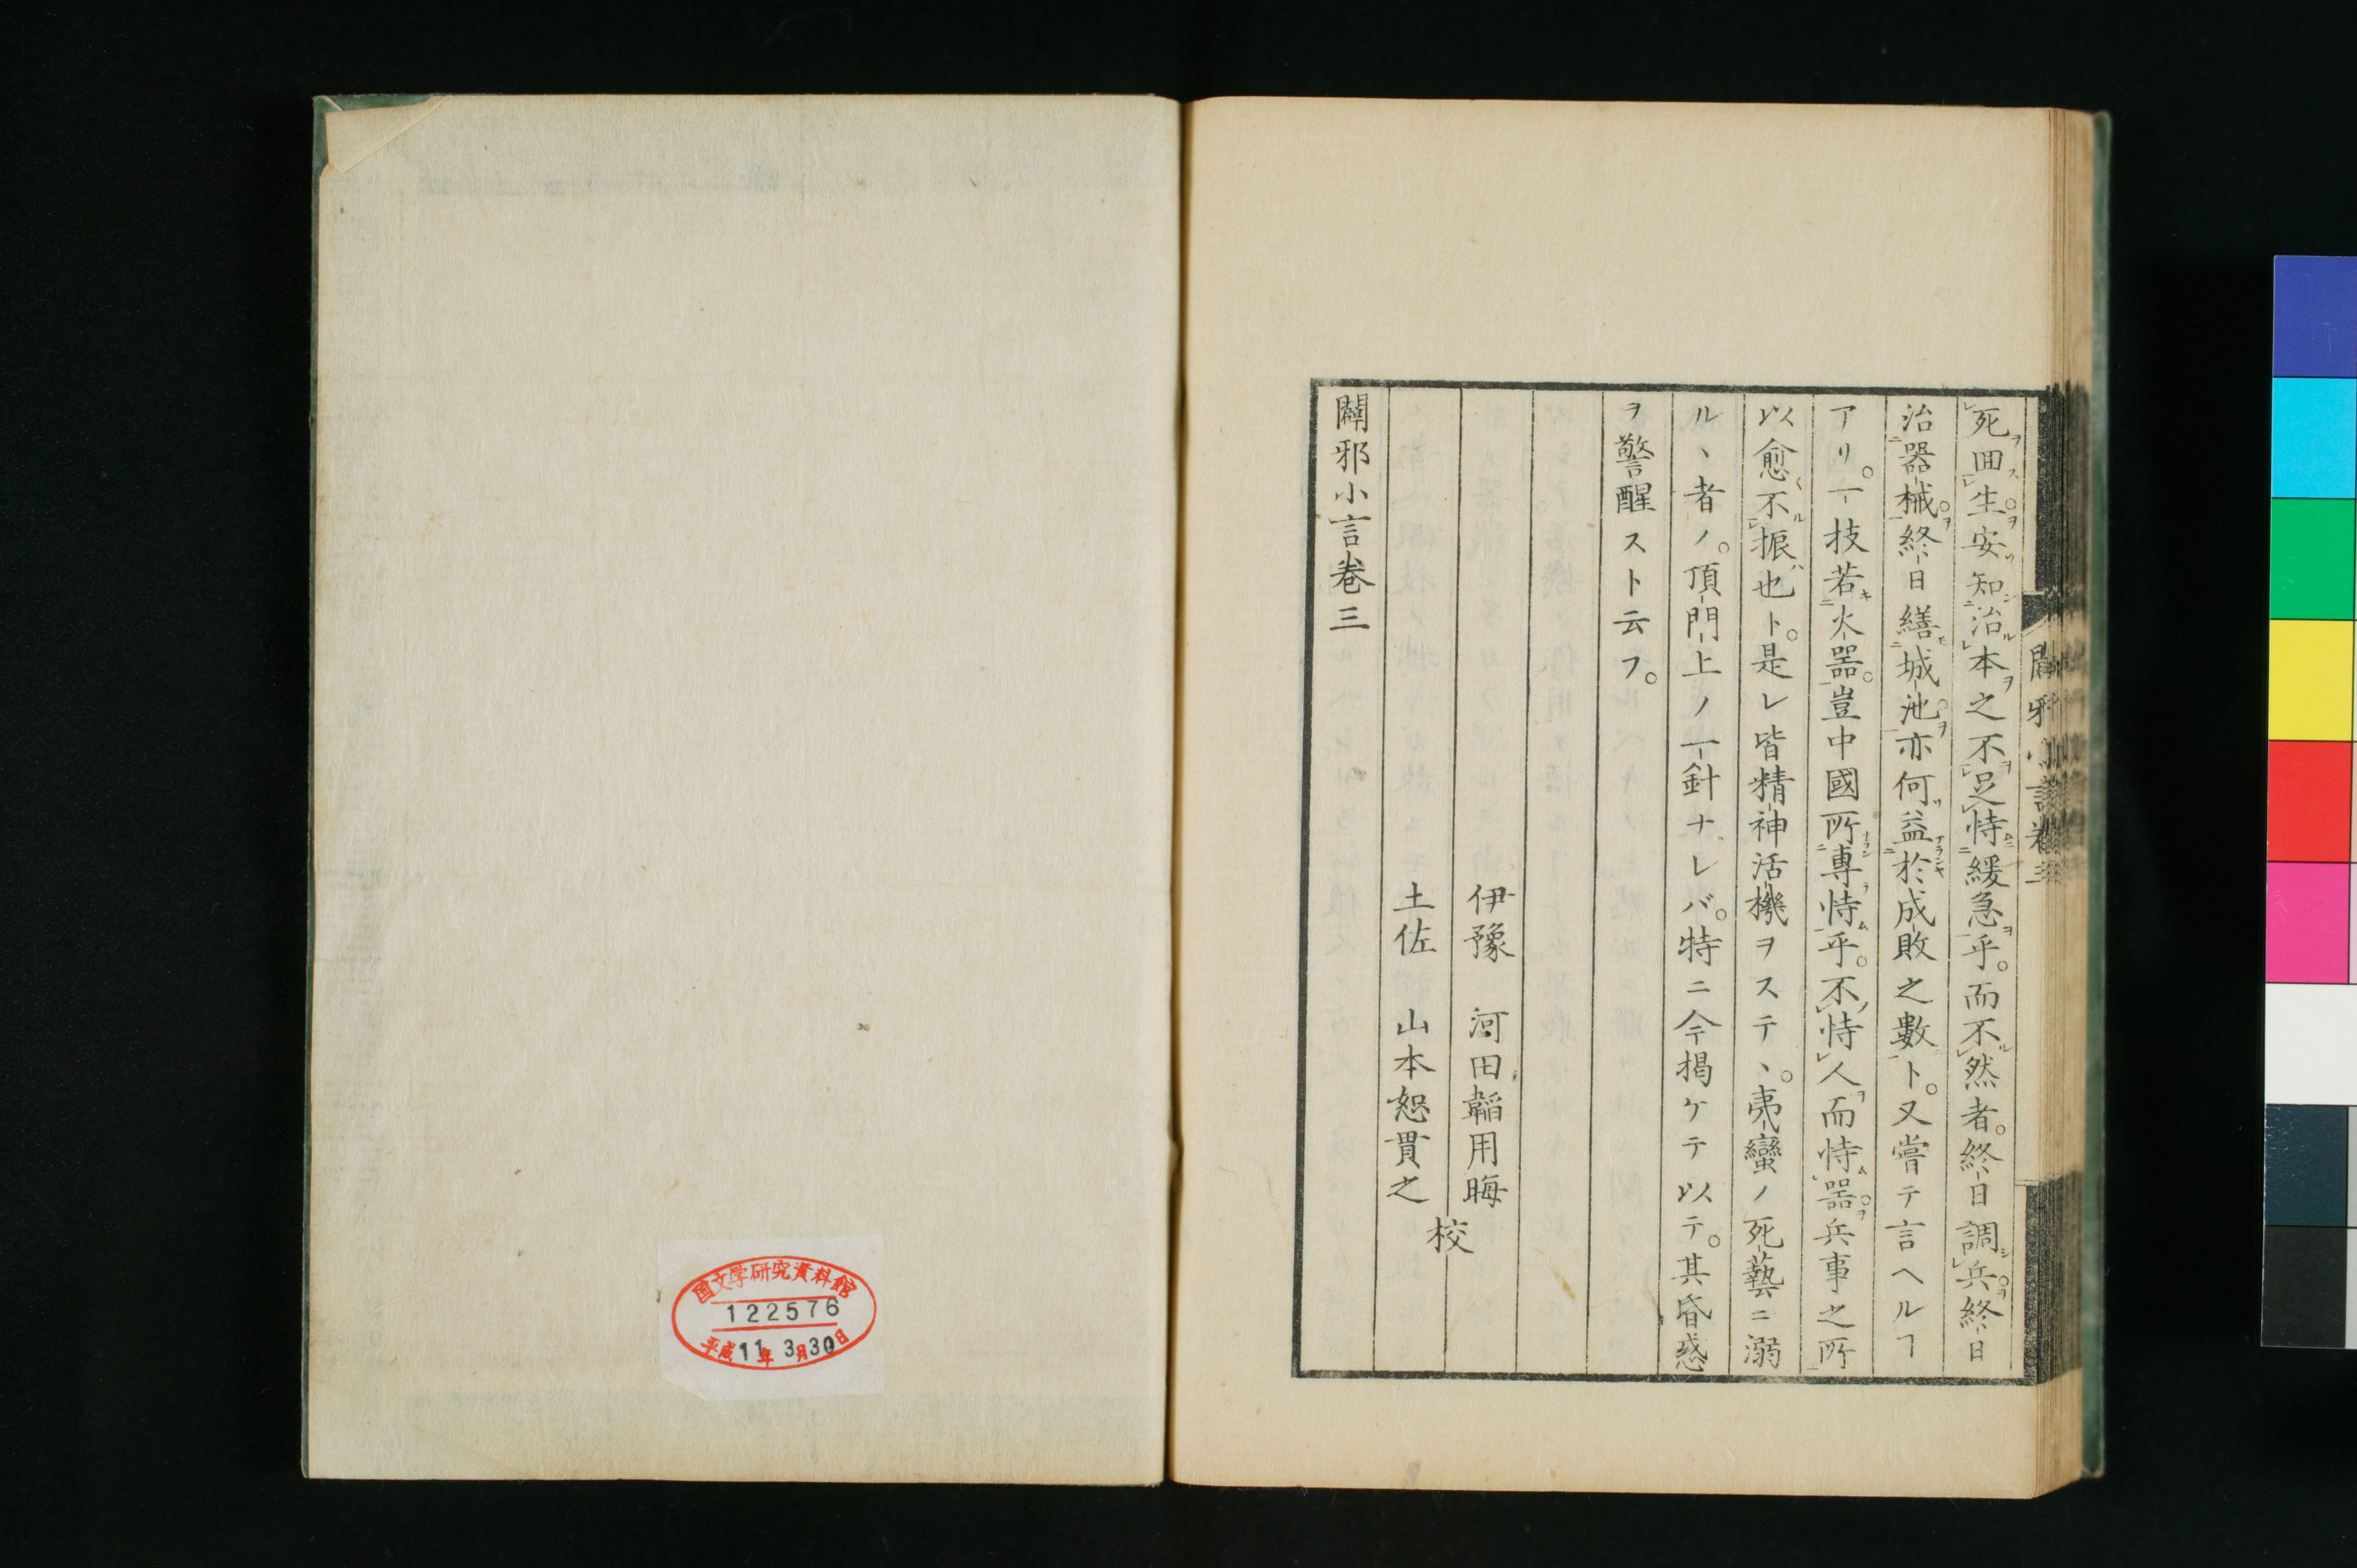 死回生安知治本之不足恃緩急乎。而不然者。終日調兵終日
治器械終日繕城池亦何益於成敗之數ト。又嘗テ言ヘルヿ
アリ。一技若火器。豈中國所專恃乎。不恃人而恃器兵事之所
以愈不振也ト。是レ皆精神活機ヲステヽ。夷蠻ノ死藝ニ溺
ルヽ者ノ。頂門上ノ一針ナレバ。特ニ今掲ケテ以テ。其昏惑
ヲ警醒スト云フ。
伊豫 河田韜用晦
土佐 山本恕貫之
校
闢邪小言卷三
国文学研究資料館
122576
平成11年3月30日